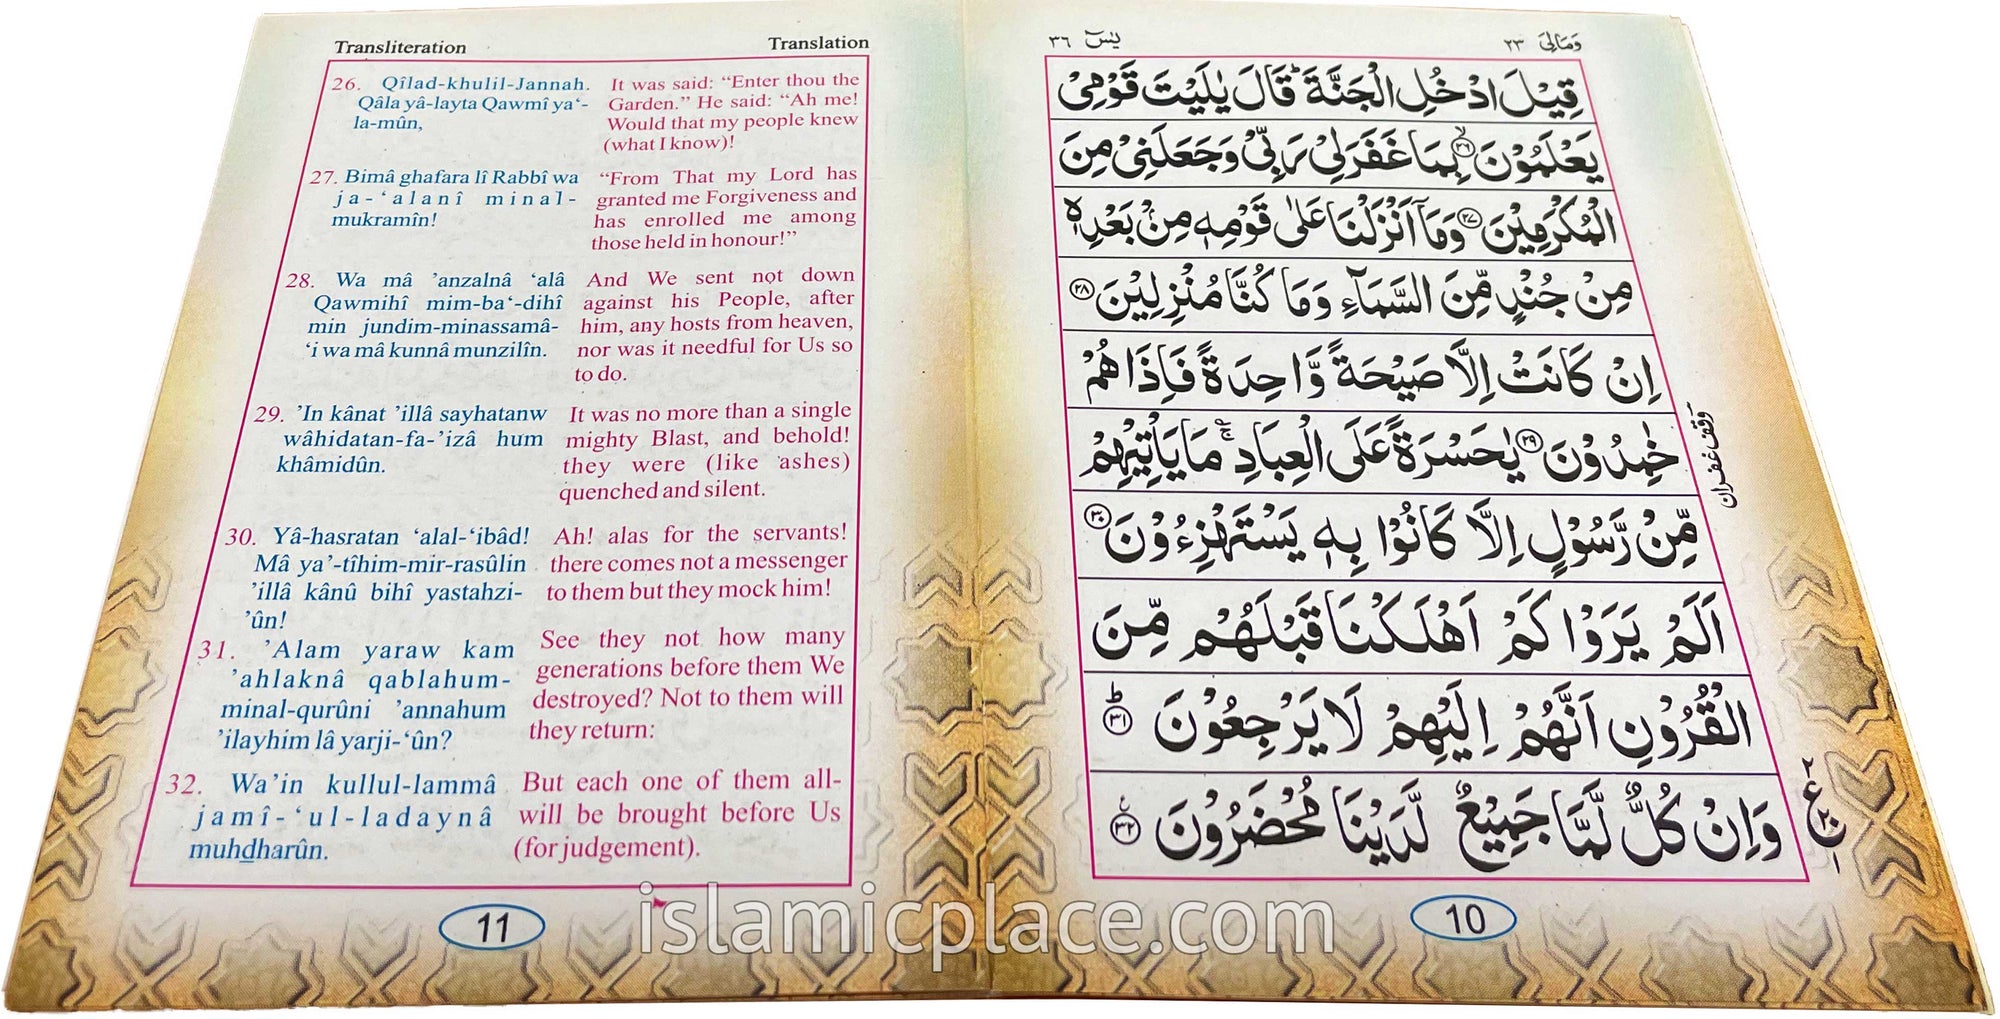 Transliteration
Translation
26. Qîlad-khulil-Jannah.
Qâla yâ-layta Qawmî ya‘-
la-mûn,
It was said: “Enter thou the
Garden.” He said: “Ah me!
Would that my people knew
(what I know)!
27. Bimâ ghafara lî Rabbî wa
ja-‘alanî minal-
mukramîn!
“From That my Lord has
granted me Forgiveness and
has enrolled me among
those held in honour!”
28. Wa mâ ’anzalnâ ‘alâ
Qawmihî mim-ba‘-dihî
min jundim-minassamâ-
‘i wa mâ kunnâ munzilîn.
And We sent not down
against his People, after
him, any hosts from heaven,
nor was it needful for Us so
to do.
29. ’In kânat ’illâ sayhatanw
wâhidatan-fa-’izâ hum
khâmidûn.
It was no more than a single
mighty Blast, and behold!
they were (like ashes)
quenched and silent.
30. Yâ-hasratan ‘alal-‘ibâd!
Mâ ya’-tîhim-mir-rasûlin
’illâ kânû bihî yastahzi-
’ûn!
Ah! alas for the servants!
there comes not a messenger
to them but they mock him!
31. ’Alam yaraw kam
’ahlaknâ qablahum-
minal-qurûni ’annahum
’ilayhim lâ yarji-‘ûn?
See they not how many
generations before them We
destroyed? Not to them will
they return:
32. Wa’in kullul-lammâ
jamî-‘ul-ladaynâ
muhdharûn.
But each one of them all-
will be brought before Us
(for judgement).
11
وَمَالِىَ ٢٣
يٰسٓ ٣٦
قِيْلَ ادْخُلِ الْجَنَّةَ ؕ قَالَ يٰلَيْتَ قَوْمِيْ
يَعْلَمُوْنَ ۙ﴿۲۶﴾ بِمَا غَفَرَ لِيْ رَبِّيْ وَجَعَلَنِيْ مِنَ
الْمُكْرَمِيْنَ ﴿۲۷﴾ وَمَاۤ اَنْزَلْنَا عَلٰى قَوْمِهٖ مِنْۢ بَعْدِهٖ
مِنْ جُنْدٍ مِّنَ السَّمَآءِ وَمَا كُنَّا مُنْزِلِيْنَ ﴿۲۸﴾
اِنْ كَانَتْ اِلَّا صَيْحَةً وَّاحِدَةً فَاِذَا هُمْ
خٰمِدُوْنَ ﴿۲۹﴾ يٰحَسْرَةً عَلَى الْعِبَادِ ۚ مَا يَاْتِيْهِمْ
مِّنْ رَّسُوْلٍ اِلَّا كَانُوْا بِهٖ يَسْتَهْزِءُوْنَ ﴿۳۰﴾
اَلَمْ يَرَوْا كَمْ اَهْلَكْنَا قَبْلَهُمْ مِّنَ
الْقُرُوْنِ اَنَّهُمْ اِلَيْهِمْ لَا يَرْجِعُوْنَ ﴿۳۱﴾ؕ
وَاِنْ كُلٌّ لَّمَّا جَمِيْعٌ لَّدَيْنَا مُحْضَرُوْنَ ﴿۳۲﴾
وقف غفران
10
islamicplace.com